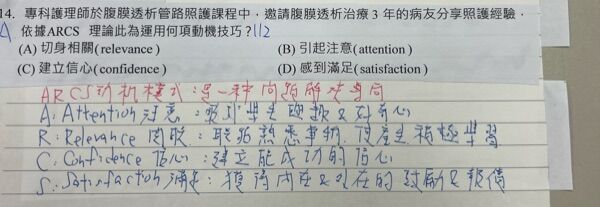 14. 專科護理師於腹膜透析管路照護課程中，邀請腹膜透析治療 3 年的病友分享照護經驗，
依據ARCS 理論此為運用何項動機技巧？112
(A) 切身相關(relevance) (B) 引起注意(attention)
(C) 建立信心(confidence) (D) 感到滿足(satisfaction)
ARCS动机模式：是一種问題解决導向
A：Attention 注意：吸引學生興趣&好奇心
R：Relevance 関聯：聯結熟悉事物，使產生積極學習
C：Confidence 信心：建立能成功的信心
S：Satisfaction 滿足：獲得內在&外在的鼓勵&報償